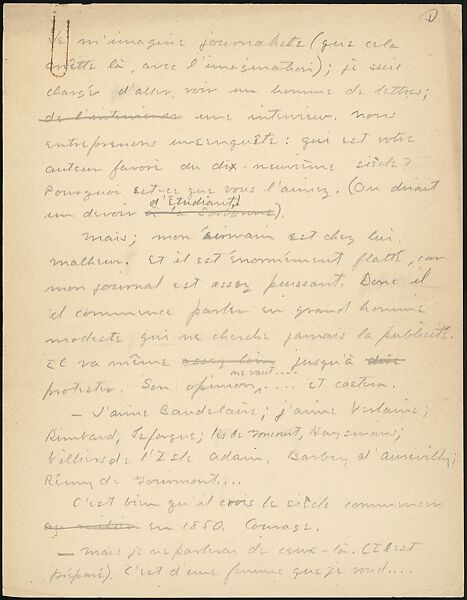 D
Je m'imagine journaliste (que cela
arrête là, avec l'imagination); je suis
chargé d'aller voir un homme de lettres;
de l'interviewer une interview. Nous
entreprenons une enquête: qui est votre
auteur favori du dix-neuvième siècle?
Pourquoi est-ce que vous l'aimez. (On dirait
d'étudiants
un devoir à la Sorbonne).
Mais; mon écrivain est chez lui.
malheur. Et il est énormément flatté, car
mon journal est assez puissant. Donc il
il commence parler en grand homme
modeste qui ne cherche jamais la publicité.
Il va même assez loin jusqu'à dire
ne vaut...
protester. Son opinion .... et caetera.
— J'aime Baudelaire; j'aime Verlaine;
Rimbaud, Laforgue; les de Goncourt, Huysmans;
Villiers de l'Isle Adam, Barbey d'Aurevilly;
Rémy de Gourmont....
C'est bien qu'il croit le siècle commencer
en 1850. Courage.
— Mais je ne parlerai de ceux-là. (Il est
préparé). C'est d'une femme que je vous....